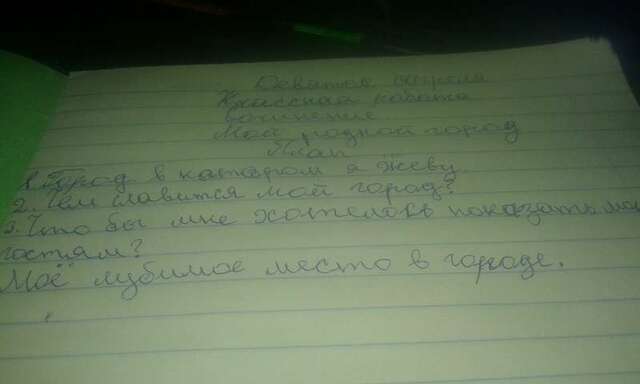 Девятое апреля
Классная работа
Сочинение
Мой родной город
План
1. Город в катором я жеву.
2. Чем славится мой город?
3. Что бы мне хотелось показать мои
гостям?
Моё лубимое место в городе.